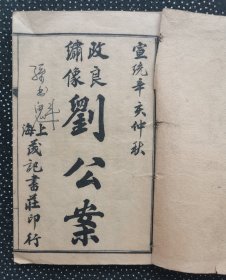 宣統辛亥仲秋
改良
繡像
劉公案
上海茂記書莊印行